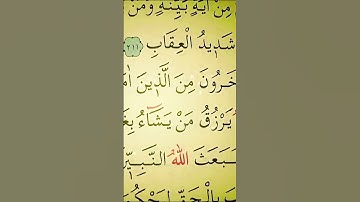 مِنْ اٰيَةٍ بَيِّنَةٍ وَمَنْ
شَدٖيدُ الْعِقَابِ ﴿٢١١﴾
خَرُونَ مِنَ الَّذٖينَ اٰمَ
يَرْزُقُ مَنْ يَشَٓاءُ بِغَ
بَعَثَ اللّٰهُ النَّبِيّٖ
بِالْحَقِّ لِيَحْكُمَ